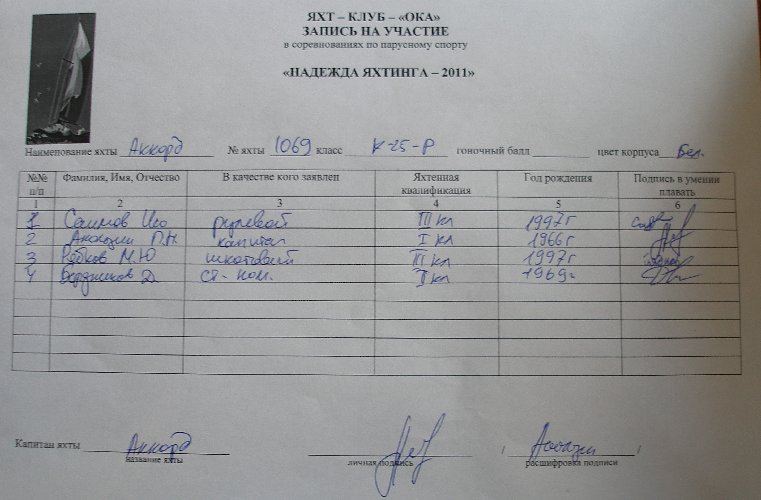 ЯХТ – КЛУБ – «ОКА»
ЗАПИСЬ НА УЧАСТИЕ
в соревнованиях по парусному спорту
«НАДЕЖДА ЯХТИНГА – 2011»
Наименование яхты Аккорд № яхты 1069 класс К-25-Р гоночный балл цвет корпуса Бел.
№№ п/п Фамилия, Имя, Отчество В качестве кого заявлен Яхтенная квалификация Год рождения Подпись в умении плавать
1 2 3 4 5 6
1 рулевой III кл 1997г
2 П.Н. капитан I кл 1966г
3 М.Ю шкотовый III кл 1997г
4 Д. ст- пом. II кл 1969г
Капитан яхты Аккорд / /
название яхты личная подпись расшифровка подписи